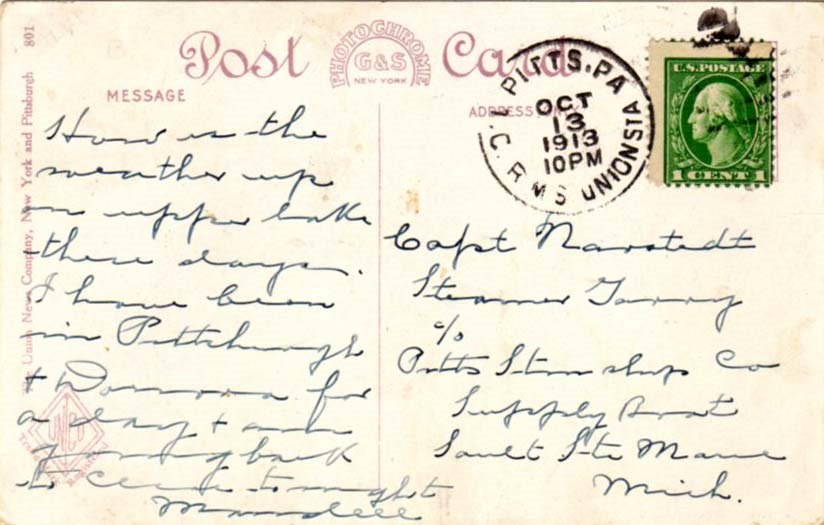 801
The Union News Company, New York and Pittsburgh
Post Card
PHOTOCHROME
G & S
NEW YORK
MESSAGE
ADDRESS
PITTS. PA
OCT
13
1913
10PM
R M S UNION STA
U.S. POSTAGE
1 CENT 1
How is the
weather up
on upper lake
these days.
I have been
in Pittsburgh
& Donora for
a day & am
going back
to Cleve tonight
Capt
Steamer
c/o
Pitts Stm ship Co
Supply Boat
Sault Ste Marie
Mich.